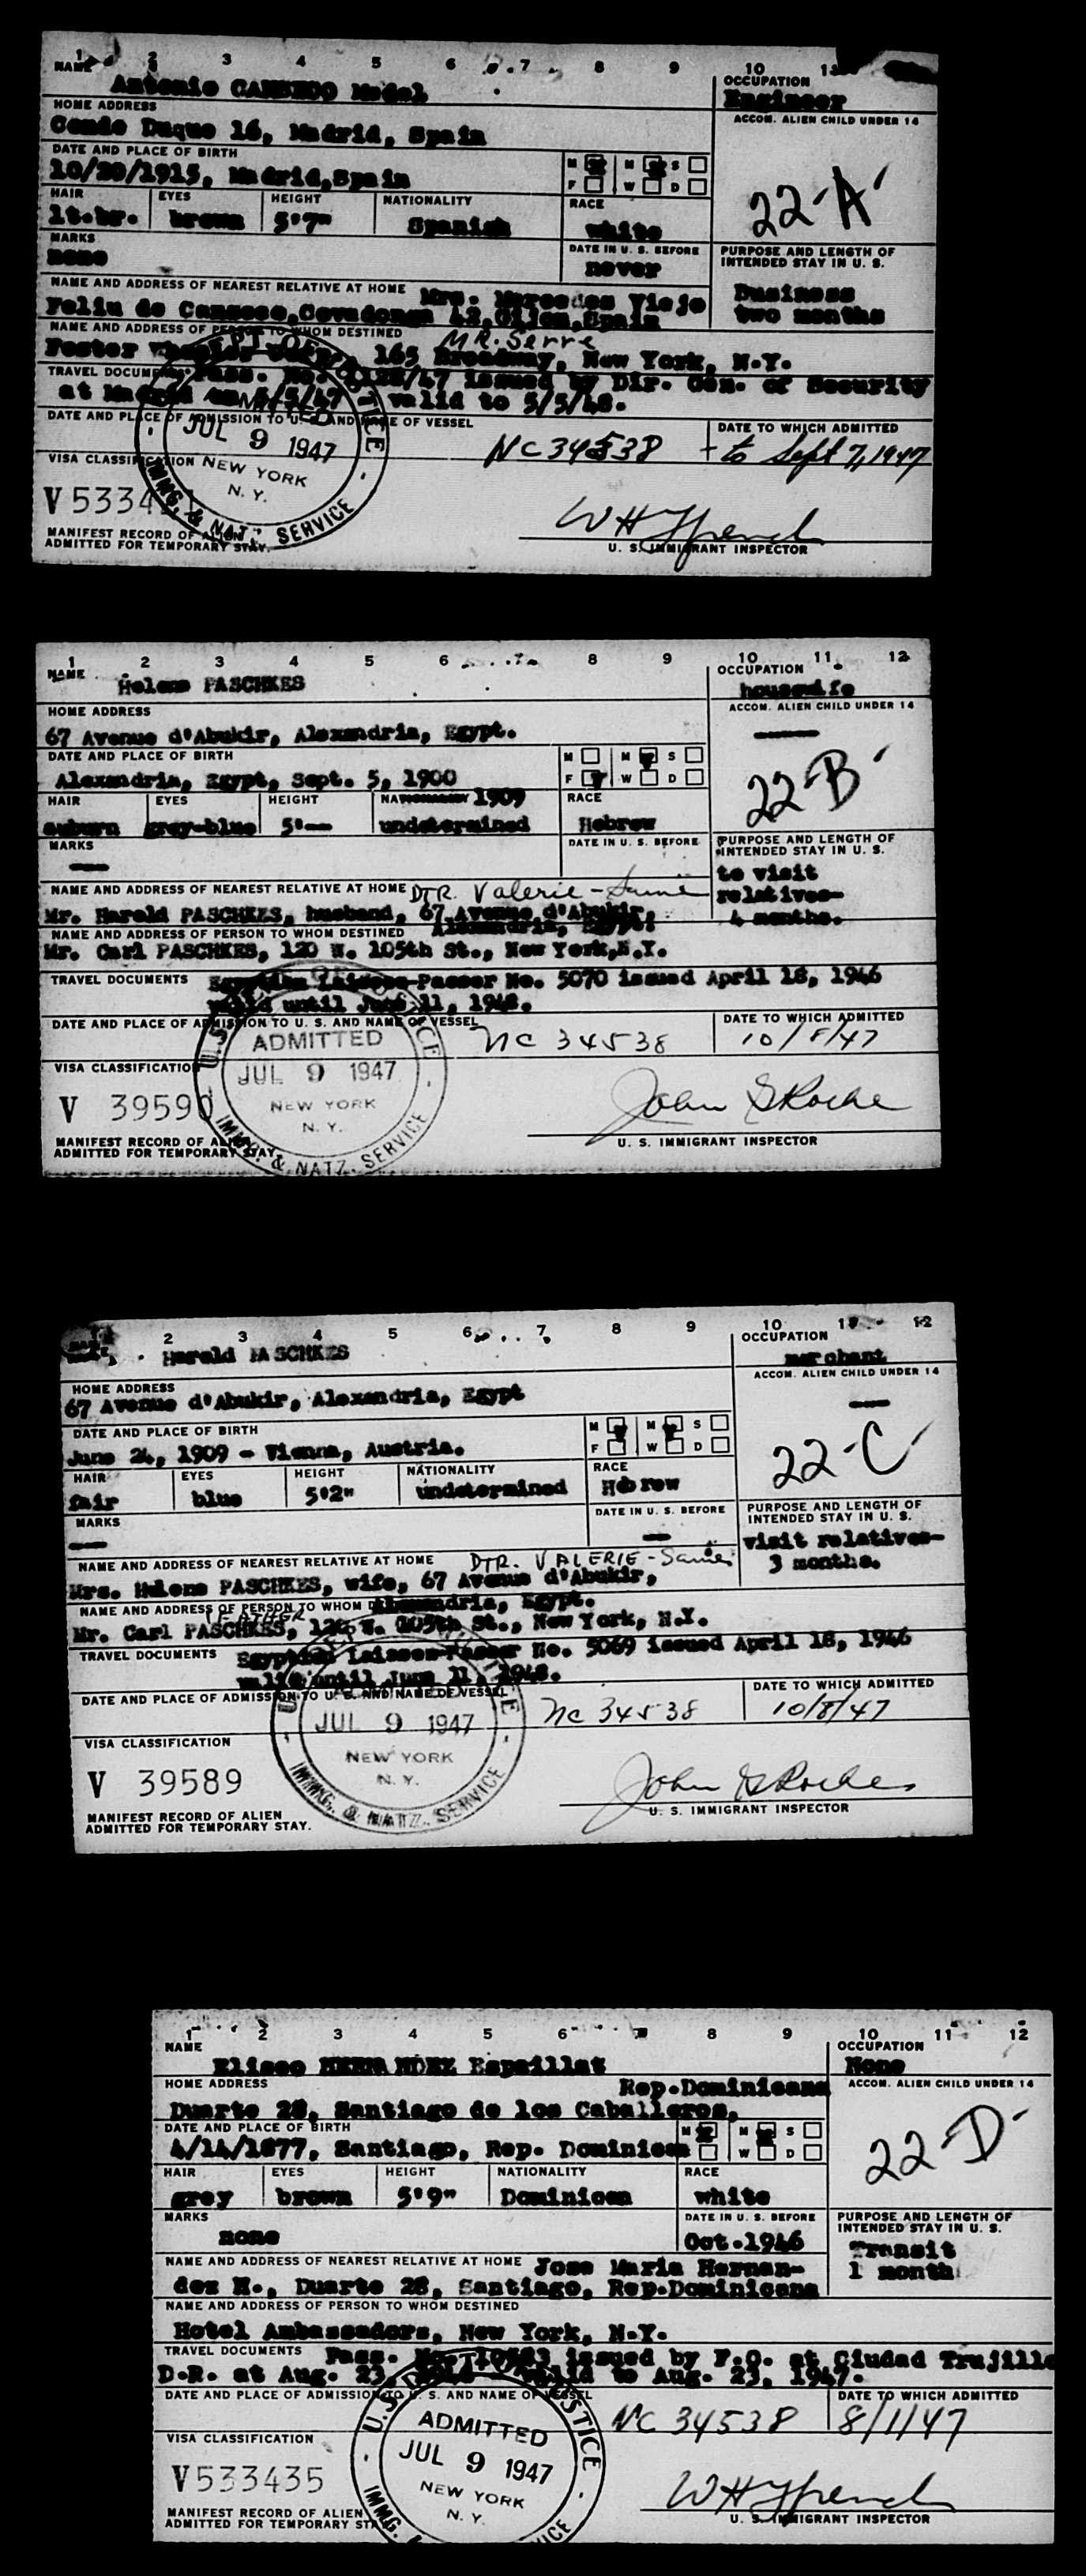 1 2 3 4 5 6 7 8 9 10
NAME
Antonio Model
OCCUPATION
Engineer
HOME ADDRESS
Conde Duque 16, Madrid, Spain
ACCOM. ALIEN CHILD UNDER 14
DATE AND PLACE OF BIRTH
10/20/1915, Madrid, Spain
M M S
F W D
22-A
HAIR EYES HEIGHT NATIONALITY RACE
lt.br. brown 5'7" Spanish white
MARKS
none
DATE IN U. S. BEFORE
never
PURPOSE AND LENGTH OF
INTENDED STAY IN U. S.
Business
two months
NAME AND ADDRESS OF NEAREST RELATIVE AT HOME
Mrs. Mercedes Viejo
Feliu de Covadonga 42, Gijon, Spain
NAME AND ADDRESS OF PERSON TO WHOM DESTINED
MR. Serre
Foster Wheeler Corp., 165 Broadway, New York, N.Y.
TRAVEL DOCUMENTS
Pass. No. issued by Dir. Gen. of Security
at Madrid on 5/5/47 valid to 5/5/48.
DATE AND PLACE OF ADMISSION TO U. S. AND NAME OF VESSEL
NC 34538
DATE TO WHICH ADMITTED
to Sept 7, 1947
JUL 9 1947
NEW YORK
N. Y.
IMMG. & NATZ. SERVICE
VISA CLASSIFICATION
MANIFEST RECORD OF ALIEN
ADMITTED FOR TEMPORARY STAY.
W H French
U. S. IMMIGRANT INSPECTOR
1 2 3 4 5 6 7 8 9 10 11 12
NAME
Helene PASCHKES
OCCUPATION
housewife
HOME ADDRESS
67 Avenue d'Abukir, Alexandria, Egypt.
ACCOM. ALIEN CHILD UNDER 14
DATE AND PLACE OF BIRTH
Alexandria, Egypt, Sept. 5, 1900
M M S
F W D
22-B
HAIR EYES HEIGHT NATIONALITY 1909 RACE
auburn grey-blue 5'-- undetermined Hebrew
MARKS
DATE IN U. S. BEFORE
PURPOSE AND LENGTH OF
INTENDED STAY IN U. S.
to visit
relatives-
4 months.
NAME AND ADDRESS OF NEAREST RELATIVE AT HOME
DTR. Valerie - Same
Mr. Harold PASCHKES, husband, 67 Avenue d'Abukir,
Alexandria, Egypt.
NAME AND ADDRESS OF PERSON TO WHOM DESTINED
Mr. Carl PASCHKES, 120 W. 105th St., New York, N.Y.
TRAVEL DOCUMENTS
Egyptian Laissez-Passer No. 5070 issued April 18, 1946
valid until June 11, 1948.
DATE AND PLACE OF ADMISSION TO U. S. AND NAME OF VESSEL
NC 34538
DATE TO WHICH ADMITTED
10/8/47
ADMITTED
JUL 9 1947
NEW YORK
N. Y.
IMMG. & NATZ. SERVICE
VISA CLASSIFICATION
V 39590
MANIFEST RECORD OF ALIEN
ADMITTED FOR TEMPORARY STAY.
John G Roche
U. S. IMMIGRANT INSPECTOR
2 3 4 5 6 7 8 9 10 11 12
NAME
Harold PASCHKES
OCCUPATION
merchant
HOME ADDRESS
67 Avenue d'Abukir, Alexandria, Egypt
ACCOM. ALIEN CHILD UNDER 14
DATE AND PLACE OF BIRTH
June 24, 1909 - Vienna, Austria.
M M S
F W D
22-C
HAIR EYES HEIGHT NATIONALITY RACE
fair blue 5'2" undetermined Hebrew
MARKS
DATE IN U. S. BEFORE
PURPOSE AND LENGTH OF
INTENDED STAY IN U. S.
visit relatives-
3 months.
NAME AND ADDRESS OF NEAREST RELATIVE AT HOME
DTR. VALERIE - Same
Mrs. Helene PASCHKES, wife, 67 Avenue d'Abukir,
Alexandria, Egypt.
NAME AND ADDRESS OF PERSON TO WHOM
FATHER
Mr. Carl PASCHKES, 120 W. 105th St., New York, N.Y.
TRAVEL DOCUMENTS
Egyptian Laissez-Passer No. 5069 issued April 18, 1946
valid until June 11, 1948.
DATE AND PLACE OF ADMISSION TO U. S. AND NAME OF VESSEL
NC 34538
DATE TO WHICH ADMITTED
10/8/47
JUL 9 1947
NEW YORK
N. Y.
IMMG. & NATZ. SERVICE
VISA CLASSIFICATION
V 39589
MANIFEST RECORD OF ALIEN
ADMITTED FOR TEMPORARY STAY.
John G Roche
U. S. IMMIGRANT INSPECTOR
1 2 3 4 5 6 7 8 9 10 11 12
NAME
Eliseo HERNANDEZ Espaillat
OCCUPATION
None
HOME ADDRESS
Rep. Dominicana
Duarte 28, Santiago de los Caballeros,
ACCOM. ALIEN CHILD UNDER 14
DATE AND PLACE OF BIRTH
4/14/1877, Santiago, Rep. Dominicana
M M S
W D
22-D
HAIR EYES HEIGHT NATIONALITY RACE
grey brown 5'9" Dominican white
MARKS
none
DATE IN U. S. BEFORE
Oct. 1946
PURPOSE AND LENGTH OF
INTENDED STAY IN U. S.
Transit
1 month
NAME AND ADDRESS OF NEAREST RELATIVE AT HOME
Jose Maria Hernan-
dez H., Duarte 28, Santiago, Rep. Dominicana
NAME AND ADDRESS OF PERSON TO WHOM DESTINED
Hotel Ambassadors, New York, N.Y.
TRAVEL DOCUMENTS
Pass. No. issued by F.O. at Ciudad Trujillo
D.R. at Aug. 23, valid to Aug. 23, 1947.
DATE AND PLACE OF ADMISSION TO U. S. AND NAME OF VESSEL
NC 34538
DATE TO WHICH ADMITTED
8/1/47
ADMITTED
JUL 9 1947
NEW YORK
N. Y.
VISA CLASSIFICATION
V533435
MANIFEST RECORD OF ALIEN
ADMITTED FOR TEMPORARY STAY
W H French
U. S. IMMIGRANT INSPECTOR